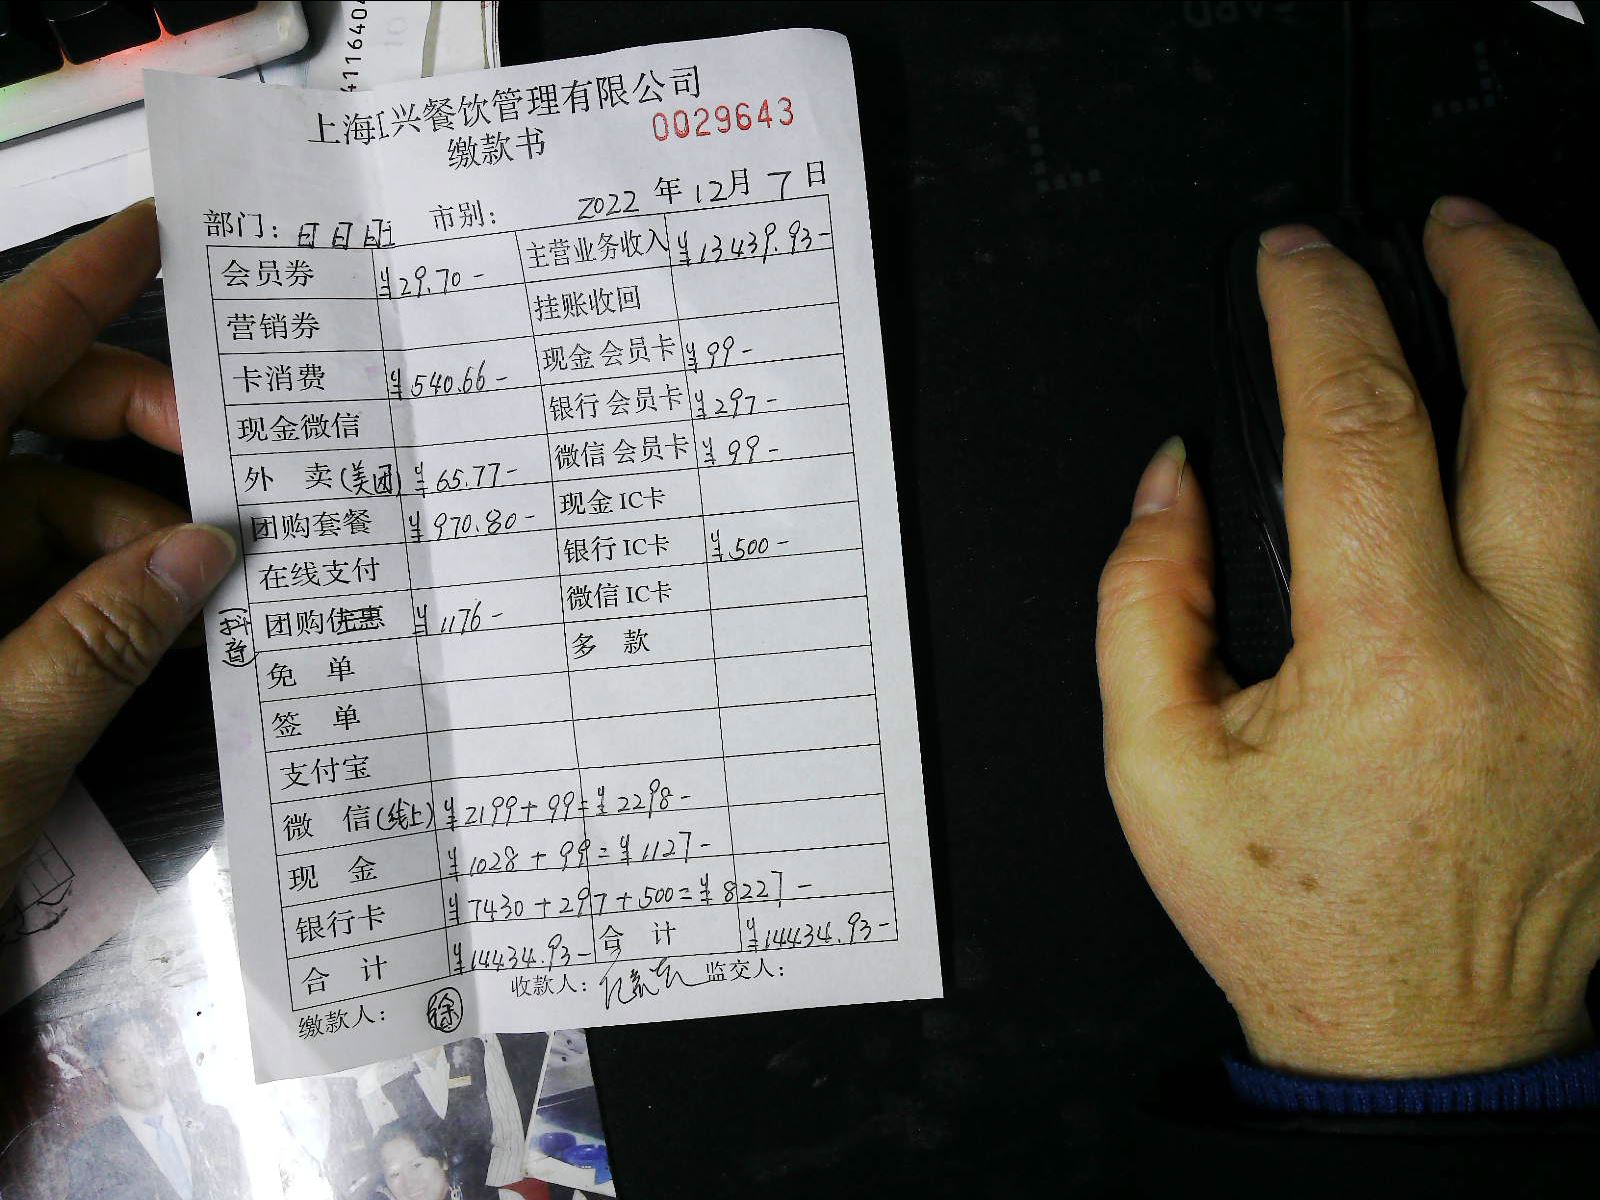 上海 兴餐饮管理有限公司
缴款书
0029643
部门: 市别: 2022 年 12月 7 日
会员券 ¥29.70- 主营业务收入 ¥13439.93-
营销券 挂账收回
卡消费 ¥540.66- 现金会员卡 ¥99-
现金微信 银行会员卡 ¥297-
外 卖(美团) ¥65.77- 微信会员卡 ¥99-
团购套餐 ¥970.80- 现金IC卡
在线支付 银行IC卡 ¥500-
(抖音) 团购优惠 ¥1176- 微信IC卡
免 单 多 款
签 单
支付宝
微 信(线上) ¥2199+99=¥2298-
现 金 ¥1028+99=¥1127-
银行卡 ¥7430+297+500=¥8227-
合 计 ¥14434.93- 合 计 ¥14434.93-
缴款人: 徐 收款人: 监交人:
4116404